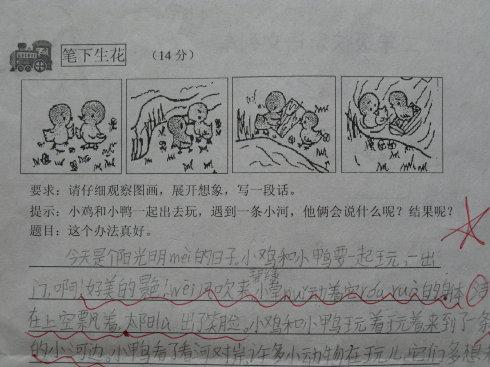 笔下生花 （14分）
要求：请仔细观察图画，展开想象，写一段话。
提示：小鸡和小鸭一起出去玩，遇到一条小河，他俩会说什么呢？结果呢？
题目：这个办法真好。
今天是个阳光明mèi的日子，小鸡和小鸭要一起玩，一出
门，啊！好美的景！wēi风吹来，小草
在上空飘着，太阳公公出了笑脸，小鸡和小鸭玩着玩着来到了一条
的小河边，小鸭看了看河对岸，许多小动物在玩儿，它们多想